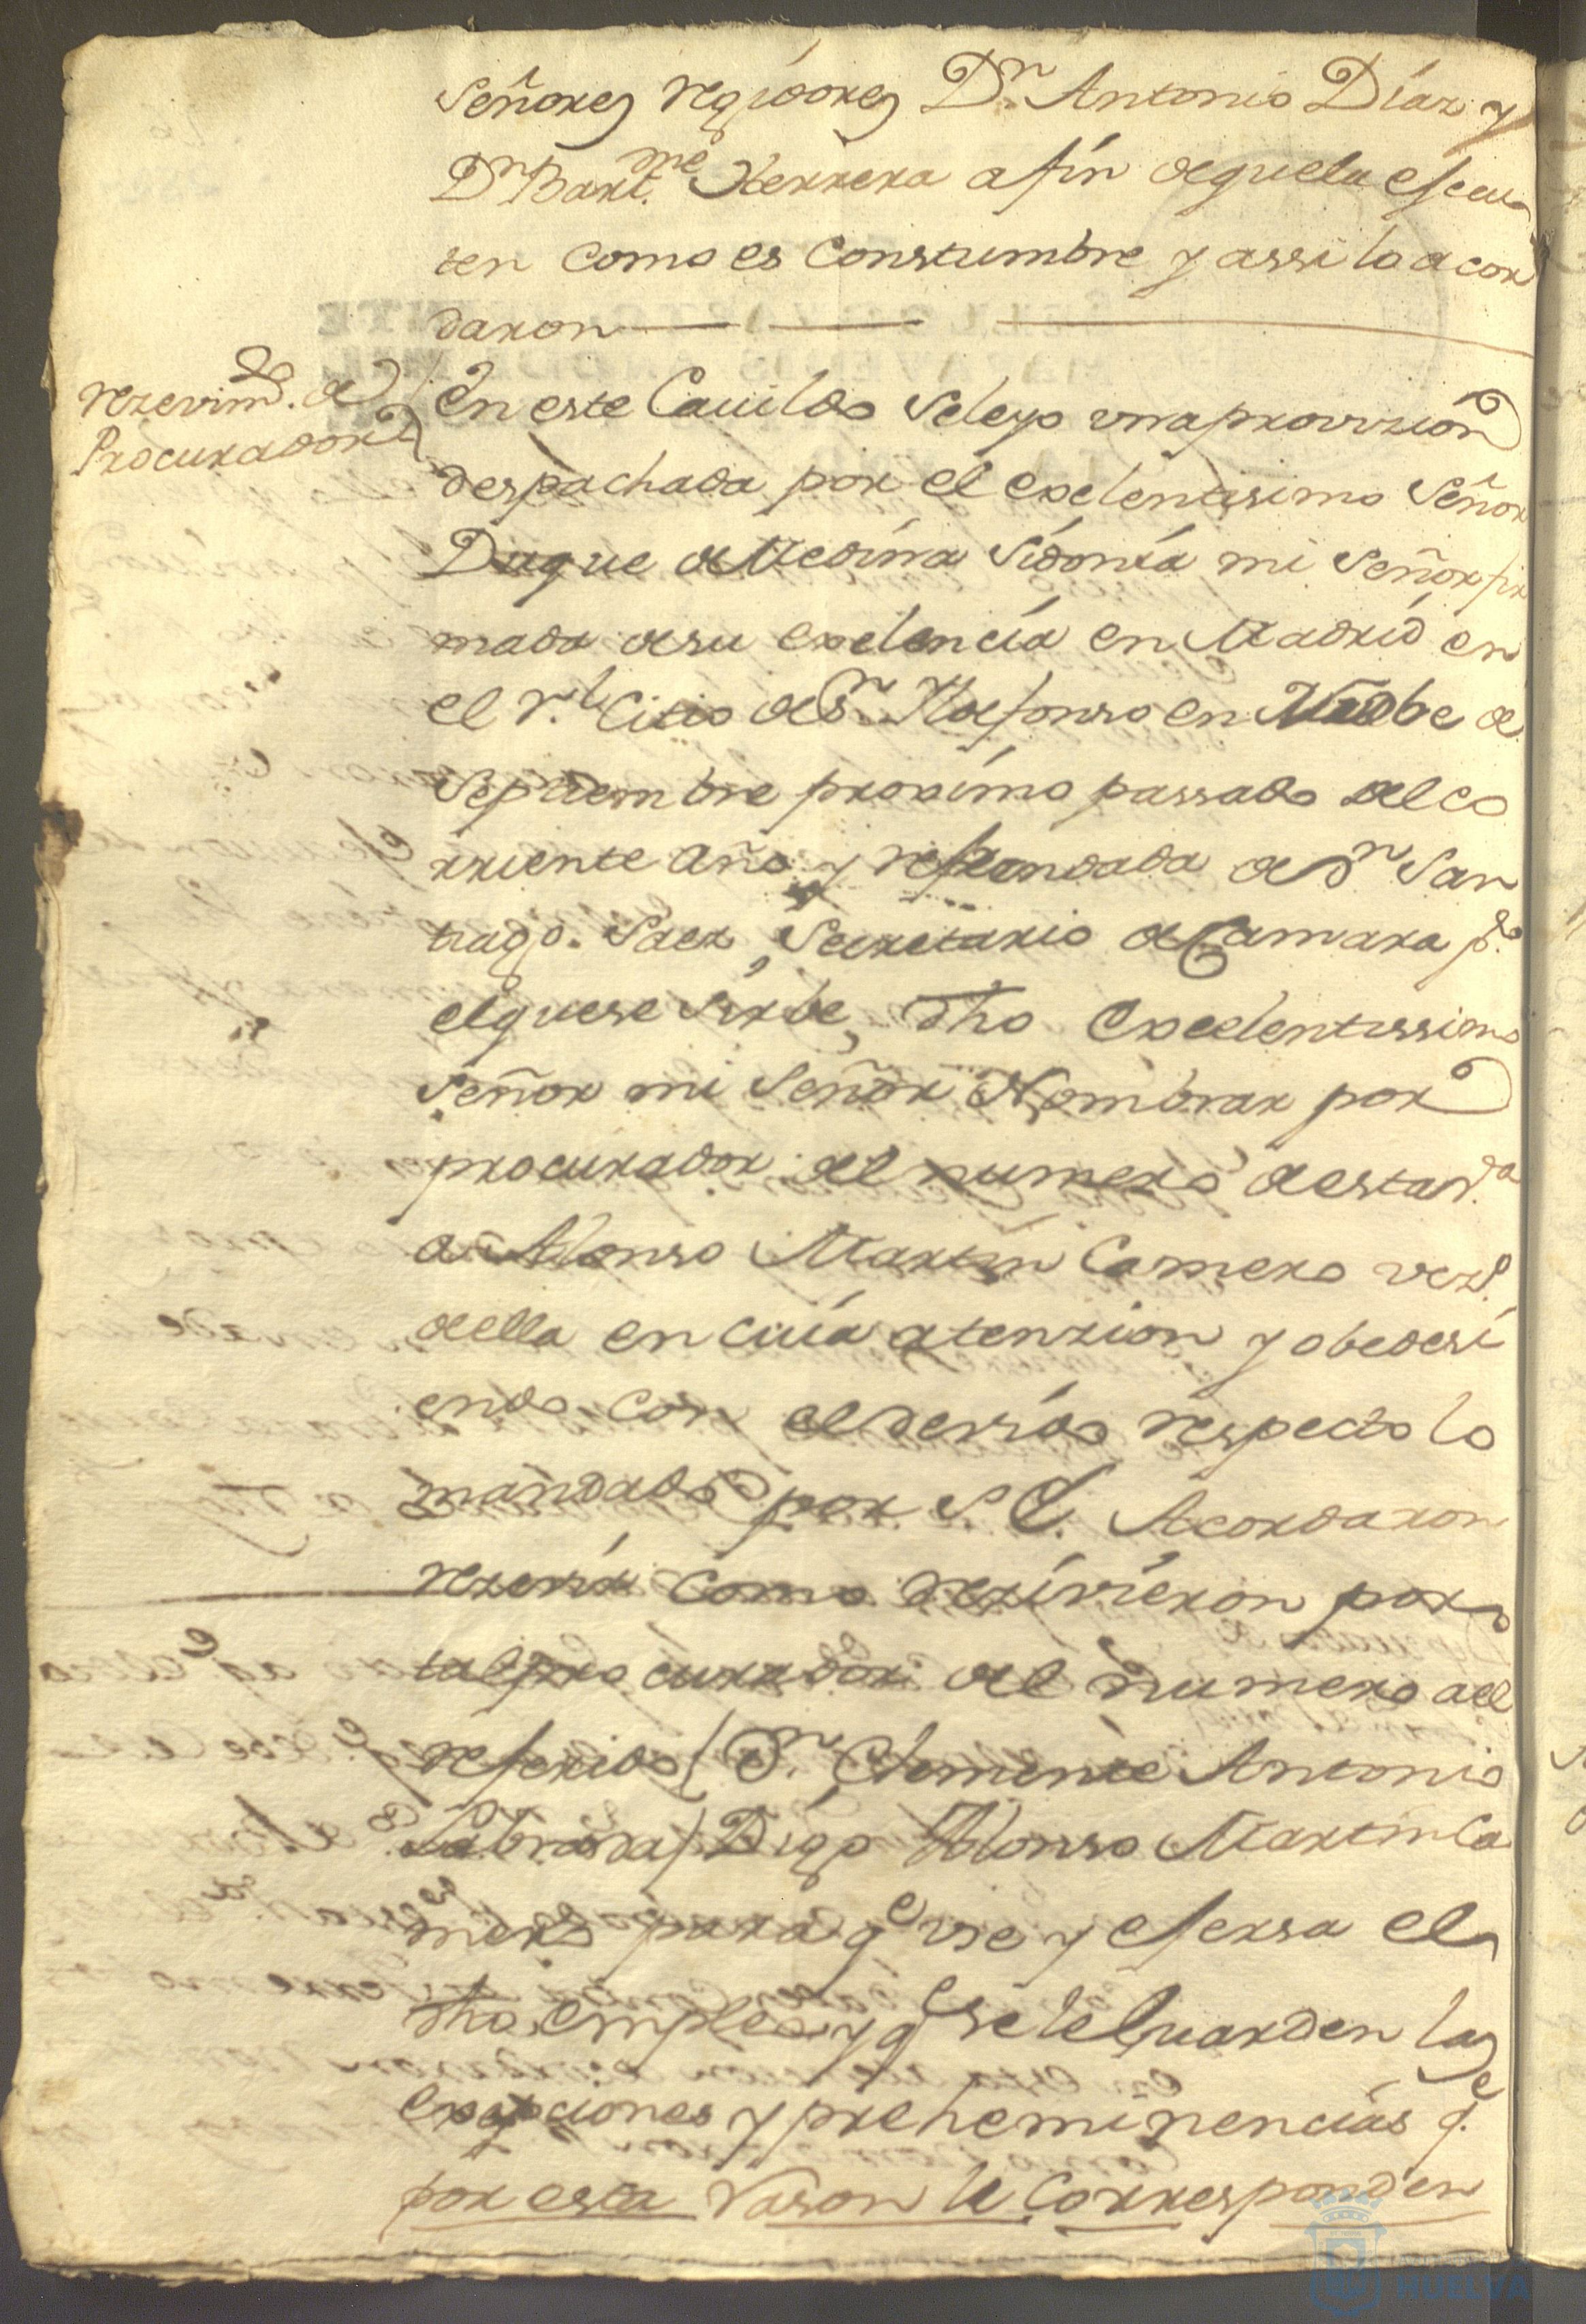 Señores regidores Dn. Antonio Díaz y
Dn Bartme. Herrera a fin de que la esecu
ten como es Constumbre y assi lo acor
daron
rezevimdo. de
Procurador
En este Cauildo se leyo vna provizion
despachada por el exelentisimo Señor
Duque de Medina Sidonia mi Señor fir
mada de su exelencia en Madrid en
el Rl. Citio de Sn Ildefonso en Nuebe de
Septiembre proximo passado del co
rriente año y refrendada de Dn San
tiago Saez Secretario de Camara p
el que se sirbe, dho Excelentissimo
Señor mi Señor Nombrar por
procurador del numero de esta va
a Alonso Martin Camero vezo.
della en cuia atenzion y obedesi
endo con el devido respecto lo
mandado por S. E. Acordaron
rezevir como rezivieron por
tal procurador del numero ael
referido (Dn. Clemente Antonio
Labrada) Digo Alonso Martin Ca
mero para qe vse y esersa el
dho empleo y qe se le Guarden las
exepciones y preheminencias qe.
por esta Rason le Corresponden
HUELVA